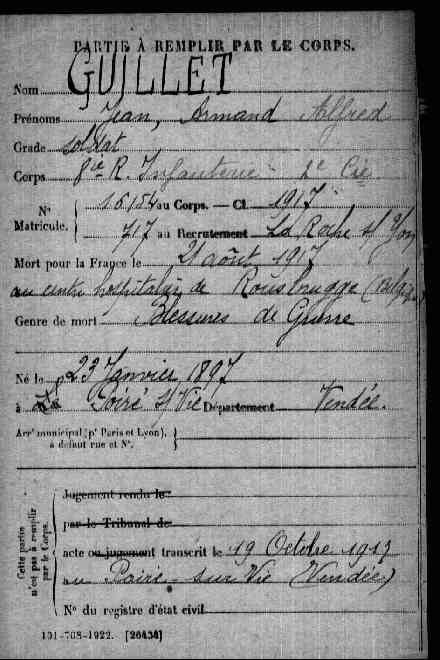 PARTIE À REMPLIR PAR LE CORPS.
Nom GUILLET
Prénoms Jean, Armand Alfred
Grade soldat
Corps 8ie R. Infanterie 2e Cie
N° Matricule. 16154 au Corps. — Cl. 1917
717 au Recrutement La Roche s/ Yon
Mort pour la France le 21 août 1917
au centre hospitalier de Rousbrugge (Belgique)
Genre de mort Blessures de Guerre
Né le 23 Janvier 1897
à Le Poiré s/ Vie Département Vendée.
Arr<sup>t</sup> municipal (p<sup>r</sup> Paris et Lyon),
à défaut rue et N°.
Cette partie n'est pas à remplir par le Corps.
Jugement rendu le
par le Tribunal de
acte ou jugement transcrit le 19 Octobre 1917
au Poiré-sur Vie (Vendée)
N° du registre d'état civil
101-708-1922. [26434]